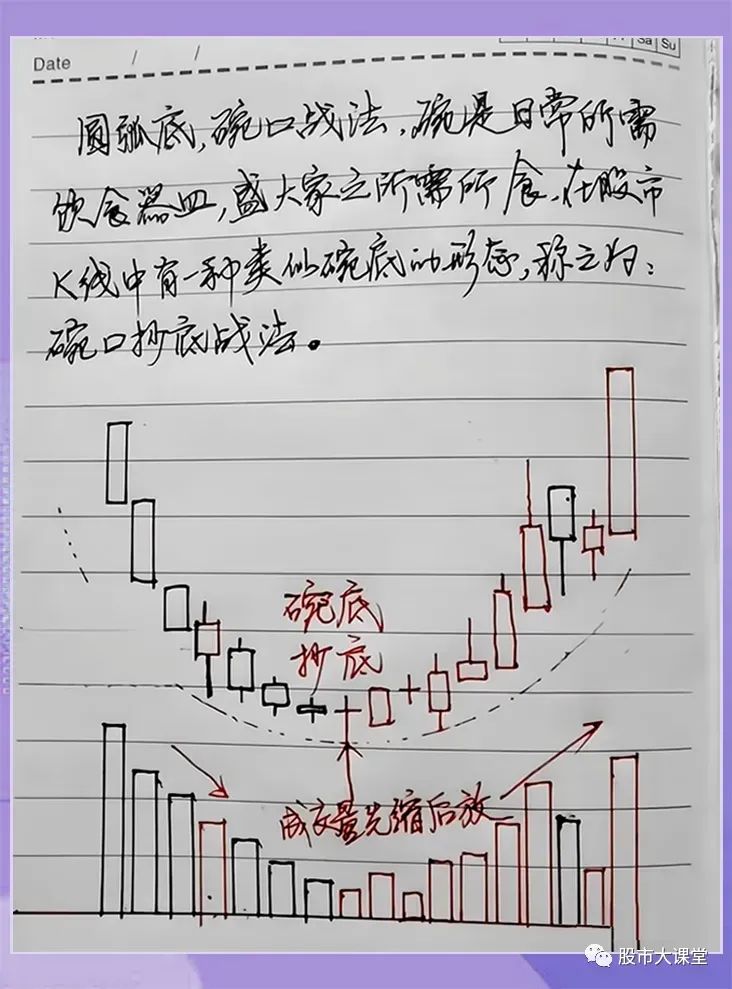 Sa Su
Date / /
圆弧底,碗口战法,碗是日常所需
饮食器皿,盛大家之所需所食、在股市
K线中有一种类似碗底的形态,称之为:
碗口抄底战法。
碗底
抄底
成交量先缩后放
股市大课堂